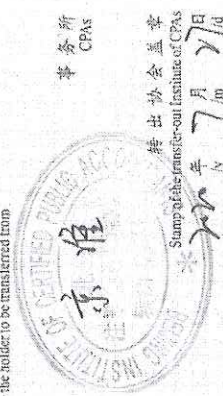 the holder to be transferred from
事务所
CPAs
转出协会盖章
Stamp of the transfer-out Institute of CPAs
2020年 7月 27日
/y /m /d
INSTITUTE OF CERTIFIED PUBLIC